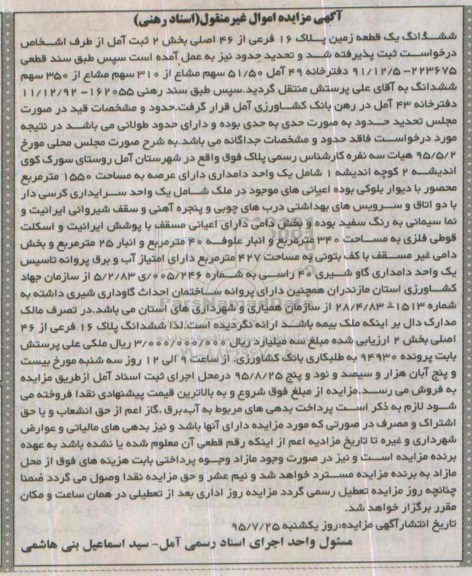 آگهی مزایده اموال غیرمنقول(اسناد رهنی)
ششدانگ یک قطعه زمین پلاک ۱۶ فرعی از ۴۶ اصلی بخش ۲ ثبت آمل از طرف اشخاص
درخواست ثبت پذیرفته شد و تحدید حدود نیز به عمل آمده است سپس طبق سند قطعی
۲۲۳۶۷۵- ۹۱/۱۲/۵ دفترخانه ۴۹ آمل ۵۱/۵۰ سهم مشاع از ۳۱۰ سهم مشاع از ۳۵۰ سهم
ششدانگ به آقای علی پرستش منتقل گردید.سپس طبق سند رهنی ۱۶۲۰۵۵- ۱۱/۱۲/۹۲
دفترخانه ۴۳ آمل در رهن بانک کشاورزی آمل قرار گرفت.حدود و مشخصات قید در صورت
مجلس تحدید حدود به صورت حدی به حدی بوده و دارای حدود طولانی می باشد در نتیجه
مورد درخواست فاقد حدود و مشخصات جداگانه می باشد.به شرح صورت مجلس محلی مورخ
۹۵/۵/۲ هیات سه نفره کارشناس رسمی پلاک فوق واقع در شهرستان آمل روستای سورک کوی
اندیشه ۲ کوچه اندیشه ۱ شامل یک واحد دامداری دارای عرصه به مساحت ۱۵۵۰ مترمربع
محصور با دیوار بلوکی بوده اعیانی های موجود در ملک شامل یک واحد سرایداری کرسی دار
با دو اتاق و سرویس های بهداشتی درب های چوبی و پنجره آهنی و سقف شیروانی ایرانیت و
نما سیمانی به رنگ سفید بوده و بخش دامی دارای اعیانی مسقف با پوشش ایرانیت و اسکلت
قوطی فلزی به مساحت ۳۴۰ مترمربع و انبار علوفه ۴۰ مترمربع و انبار ۲۵ مترمربع و بخش
دامی غیر مسقف با کف بتونی به مساحت ۴۲۷ مترمربع دارای امتیاز آب و برق پروانه تاسیس
یک واحد دامداری گاو شیری ۴۰ راسی به شماره ۵/۲/۸۳ی/۰۰۵/۲۴۶ از سازمان جهاد
کشاورزی استان مازندران همچنین دارای پروانه ساختمان احداث گاوداری شیری داشته به
شماره ۱۵۱۳- ۲۸/۴/۸۳ از سازمان همیاری و شهرداری های استان می باشد.در تصرف مالک
مدارک دال بر اینکه ملک بیمه باشد ارائه نگردیده است.لذا ششدانگ پلاک ۱۶ فرعی از ۴۶
اصلی بخش ۲ ارزیابی شده مبلغ سه میلیارد ریال ۳/۰۰۰/۰۰۰/۰۰۰ ریال ملکی علی پرستش
بابت پرونده ۹۴۹۳۰ به طلبکاری بانک کشاورزی. از ساعت ۹ الی ۱۲ روز سه شنبه مورخ بیست
و پنج آبان هزار و سیصد و نود و پنج ۹۵/۸/۲۵ درمحل اجرای ثبت اسناد آمل ازطریق مزایده
به فروش می رسد.مزایده از مبلغ فوق شروع و به بالاترین قیمت پیشنهادی نقدا فروخته می
شود لازم به ذکر است پرداخت بدهی های مربوط به آب،برق،گاز اعم از حق انشعاب و یا حق
اشتراک و مصرف در صورتی که مورد مزایده دارای آنها باشد و نیز بدهی های مالیاتی و عوارض
شهرداری و غیره تا تاریخ مزادیه اعم از اینکه رقم قطعی آن معلوم شده یا نشده باشد به عهده
برنده مزایده است و نیز در صورت وجود مازاد وجوه پرداختی بابت هزینه های فوق از محل
مازاد به برنده مزایده مسترد خواهد شد و نیم عشر و حق مزایده نقدا وصول می گردد ضمنا
چنانچه روز مزایده تعطیل رسمی گردد مزایده روز اداری بعد از تعطیلی در همان ساعت و مکان
مقرر برگزار خواهد شد.
تاریخ انتشارآگهی مزایده:روز یکشنبه ۹۵/۷/۲۵
مسئول واحد اجرای اسناد رسمی آمل- سید اسماعیل بنی هاشمی